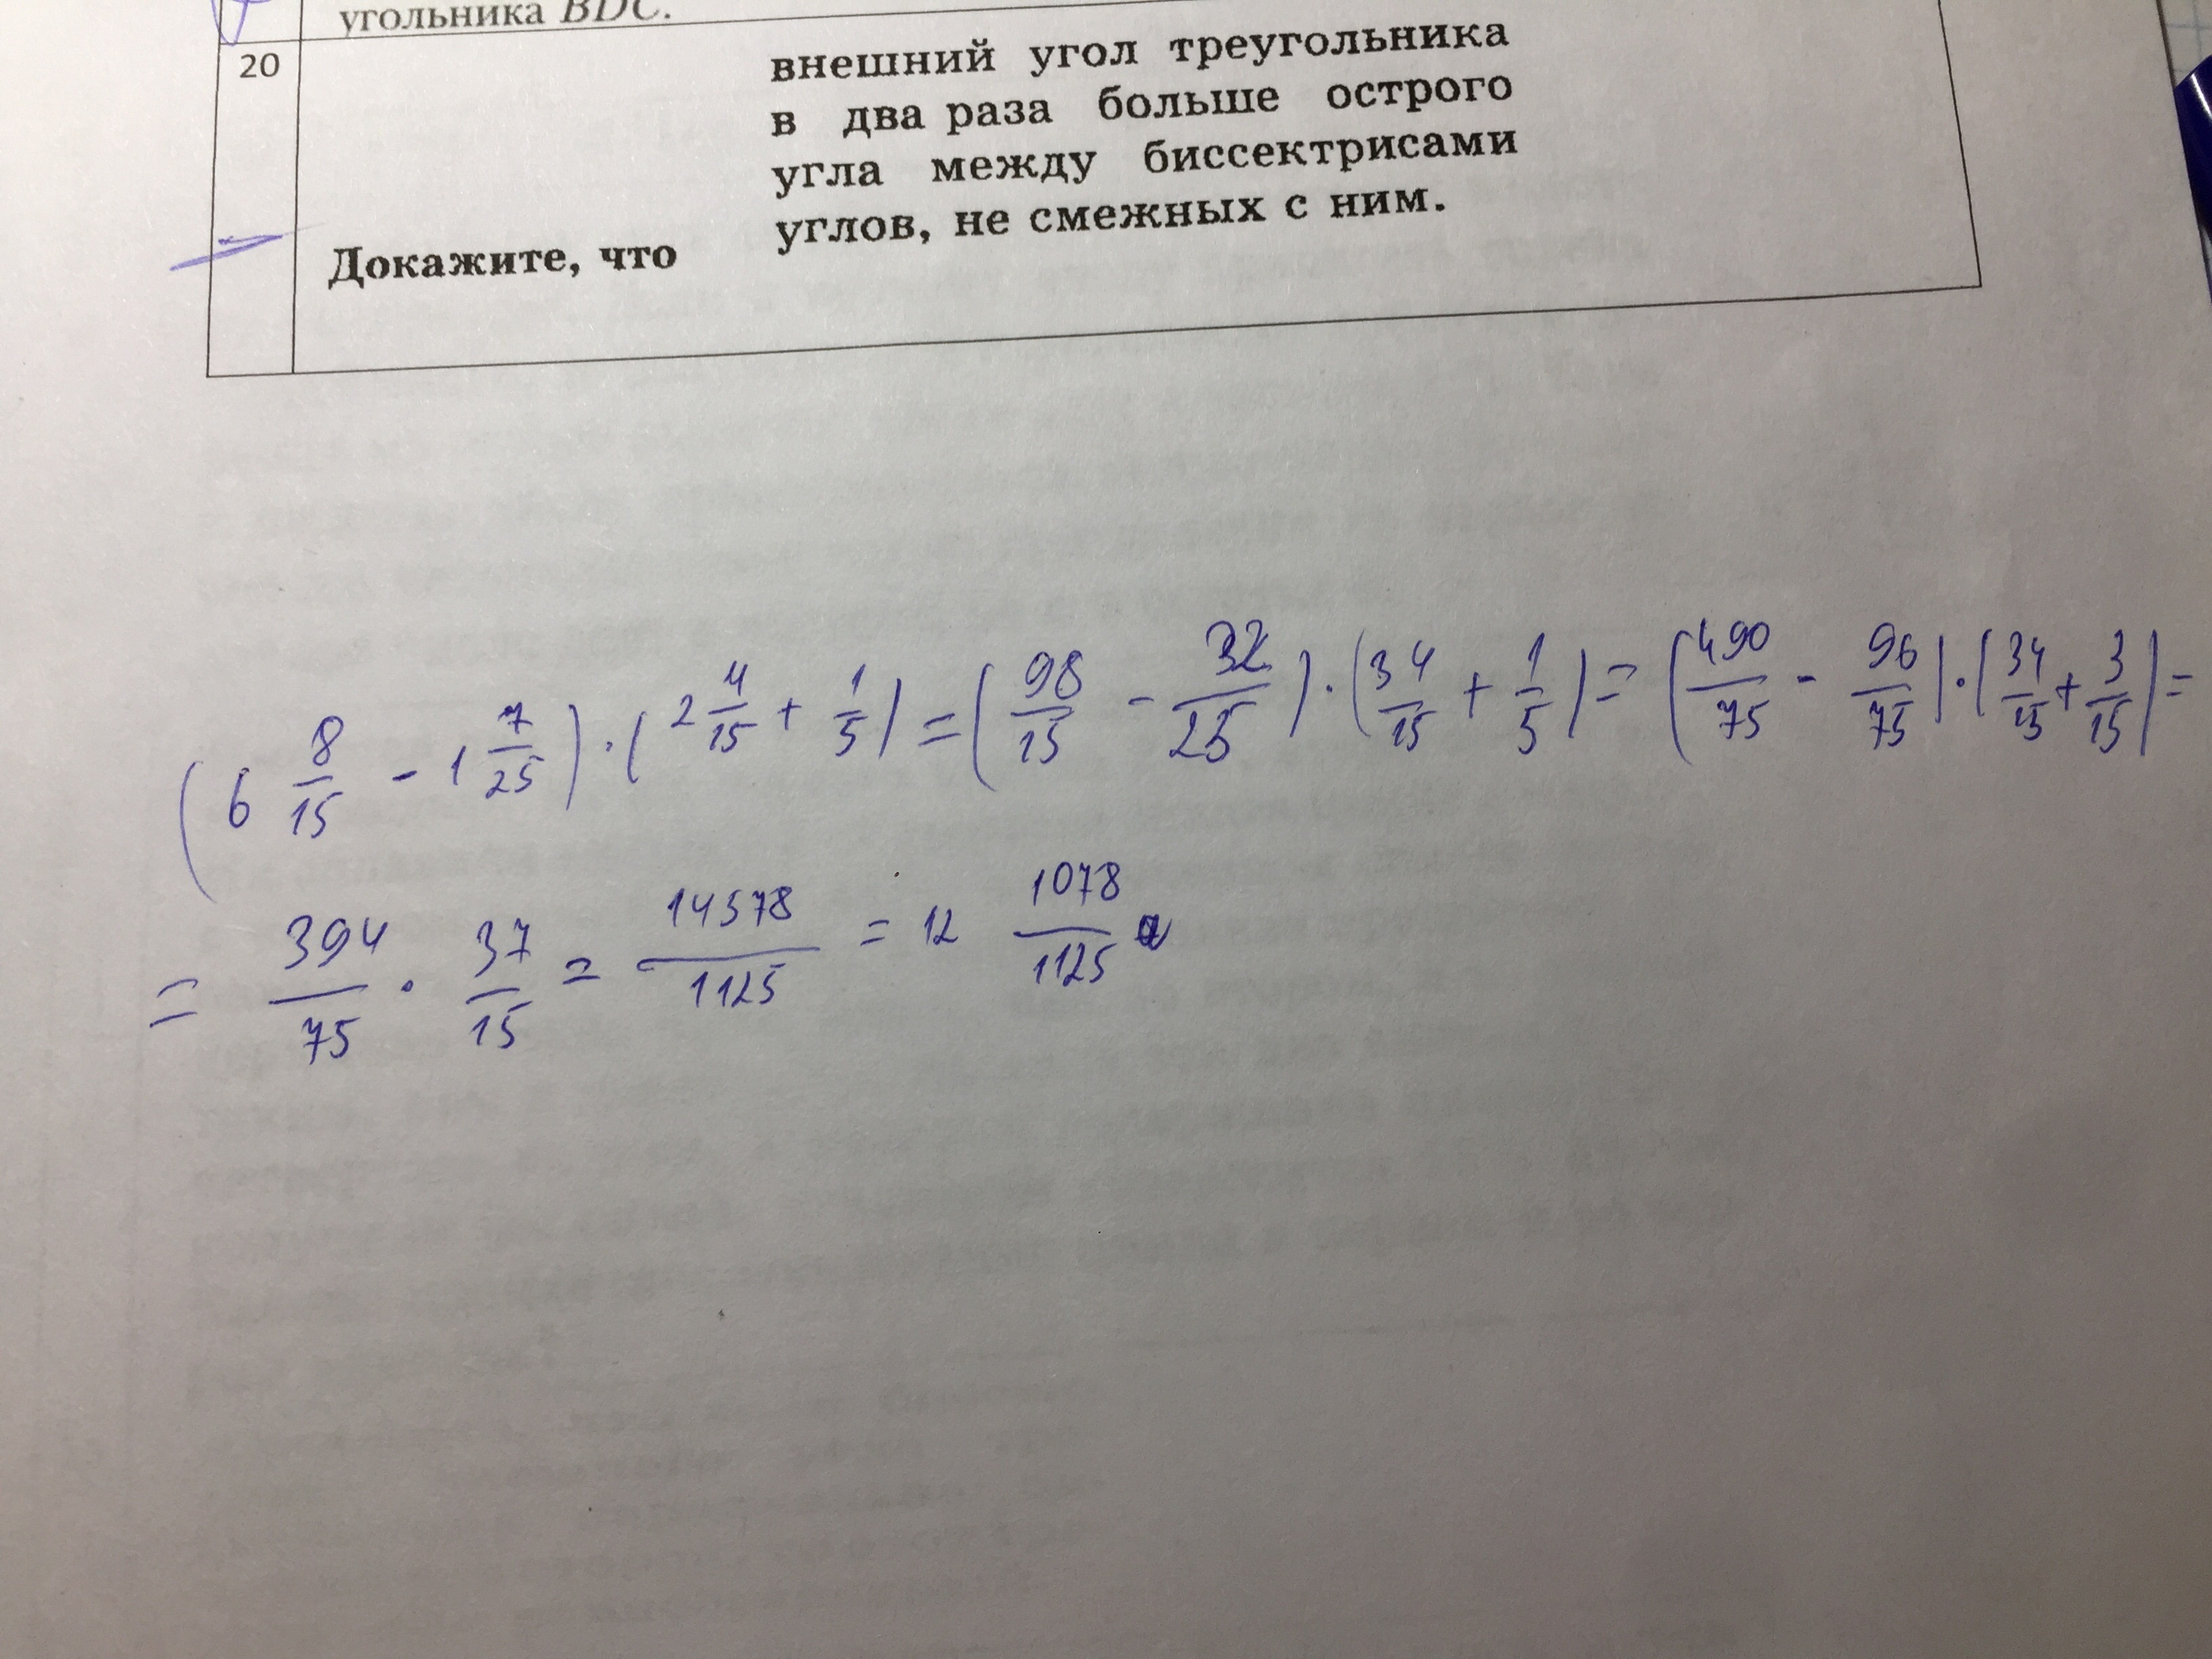 угольника BDC.
20
внешний угол треугольника
в два раза больше острого
угла между биссектрисами
углов, не смежных с ним.
Докажите, что
(6 8/15 - 1 7/25) · (2 4/15 + 1/5) = (98/15 - 32/25) · (34/15 + 1/5) = (490/75 - 96/75) · (34/15 + 3/15) =
= 394/75 · 37/15 = 14578/1125 = 12 1078/1125